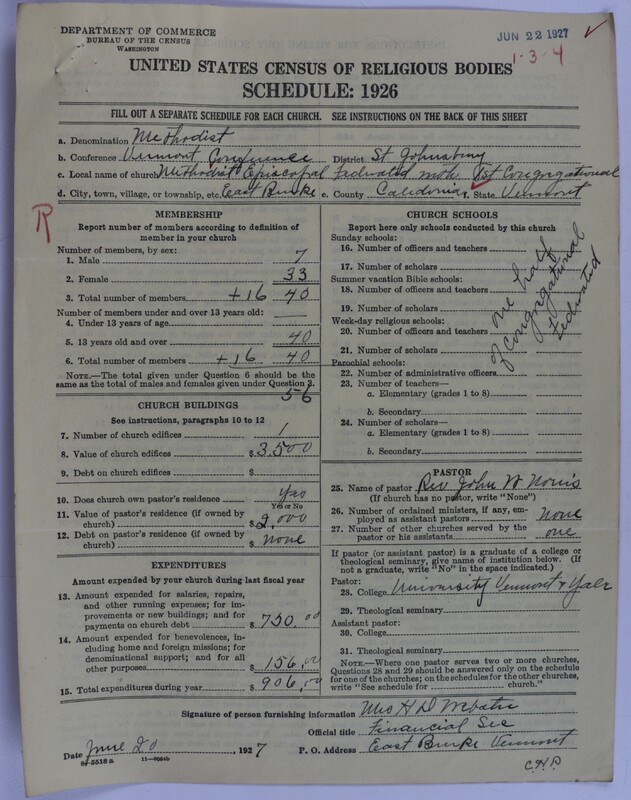 DEPARTMENT OF COMMERCE
BUREAU OF THE CENSUS
WASHINGTON
JUN 22 1927
1-3-4
UNITED STATES CENSUS OF RELIGIOUS BODIES
SCHEDULE: 1926
FILL OUT A SEPARATE SCHEDULE FOR EACH CHURCH. SEE INSTRUCTIONS ON THE BACK OF THIS SHEET
a. Denomination Methodist
b. Conference Vermont Conference District St Johnsbury
c. Local name of church Methodist Episcopal federated with 1st Congregational
d. City, town, village, or township, etc. East Burke e. County Caledonia f. State Vermont
R
MEMBERSHIP
Report number of members according to definition of member in your church
Number of members, by sex:
1. Male 7
2. Female 33
3. Total number of members +16 40
Number of members under and over 13 years old:
4. Under 13 years of age
5. 13 years old and over 40
6. Total number of members +16 40
NOTE.—The total given under Question 6 should be the same as the total of males and females given under Question 3.
56
CHURCH BUILDINGS
See instructions, paragraphs 10 to 12
7. Number of church edifices 1
8. Value of church edifices $ 3,500
9. Debt on church edifices $
10. Does church own pastor's residence Yes
Yes or No
11. Value of pastor's residence (if owned by church) $ 2,000
12. Debt on pastor's residence (if owned by church) $ none
EXPENDITURES
Amount expended by your church during last fiscal year
13. Amount expended for salaries, repairs, and other running expenses; for improvements or new buildings; and for payments on church debt $ 750.00
14. Amount expended for benevolences, including home and foreign missions; for denominational support; and for all other purposes $ 156.00
15. Total expenditures during year $ 906.00
CHURCH SCHOOLS
Report here only schools conducted by this church
Sunday schools:
16. Number of officers and teachers
17. Number of scholars
Summer vacation Bible schools:
18. Number of officers and teachers
19. Number of scholars
Week-day religious schools:
20. Number of officers and teachers
21. Number of scholars
Parochial schools:
22. Number of administrative officers
23. Number of teachers—
a. Elementary (grades 1 to 8)
b. Secondary
24. Number of scholars—
a. Elementary (grades 1 to 8)
b. Secondary
one half
of Congregational
Federated
PASTOR
25. Name of pastor Rev John W Norris
(If church has no pastor, write "None")
26. Number of ordained ministers, if any, employed as assistant pastors None
27. Number of other churches served by the pastor or his assistants one
If pastor (or assistant pastor) is a graduate of a college or theological seminary, give name of institution below. (If not a graduate, write "No" in the space indicated.)
Pastor:
28. College University Vermont & Yale
29. Theological seminary
Assistant pastor:
30. College
31. Theological seminary
NOTE.—Where one pastor serves two or more churches, Questions 28 and 29 should be answered only on the schedule for one of the churches; on the schedules for the other churches, write "See schedule for church."
Signature of person furnishing information Mrs H D Webster
Official title Financial Sec
Date June 20, 1927 P. O. Address East Burke Vermont